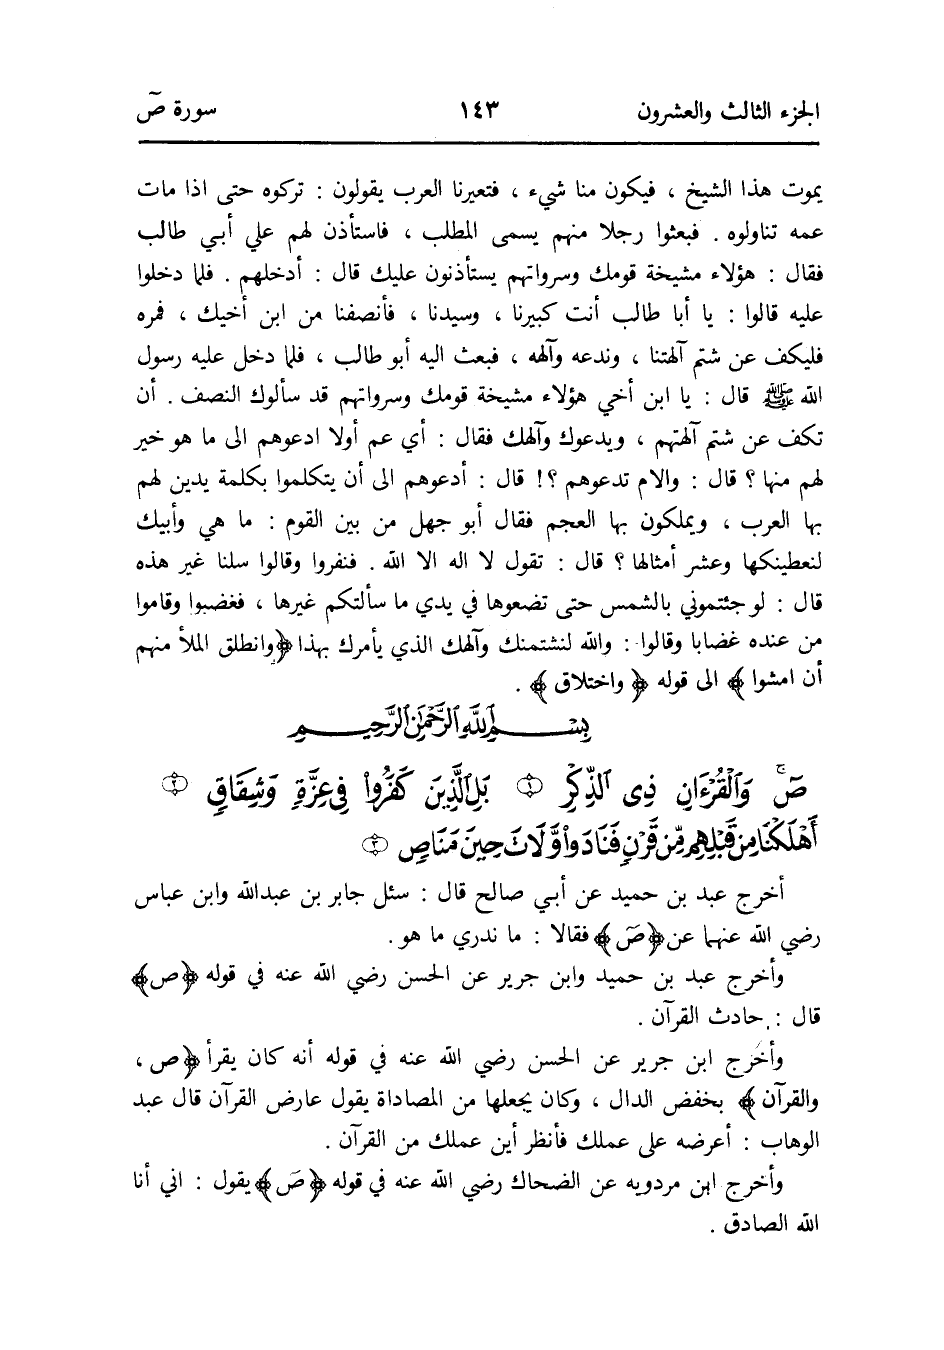 الجزء الثالث والعشرون ١٤٣ سورة صٓ
يموت هذا الشيخ ، فيكون منا شيء ، فتعيرنا العرب يقولون : تركوه حتى اذا مات
عمه تناولوه . فبعثوا رجلا منهم يسمى المطلب ، فاستأذن لهم علي أبي طالب
فقال : هؤلاء مشيخة قومك وسرواتهم يستأذنون عليك قال : أدخلهم . فلما دخلوا
عليه قالوا : يا أبا طالب أنت كبيرنا ، وسيدنا ، فأنصفنا من ابن أخيك ، فمره
فليكف عن شتم آلهتنا ، وندعه وآلهه ، فبعث اليه أبو طالب ، فلما دخل عليه رسول
الله ﷺ قال : يا ابن أخي هؤلاء مشيخة قومك وسرواتهم قد سألوك النصف . أن
تكف عن شتم آلهتهم ، ويدعوك وآلهك فقال : أي عم أولا ادعوهم الى ما هو خير
لهم منها ؟ قال : والام تدعوهم ؟! قال : أدعوهم الى أن يتكلموا بكلمة يدين لهم
بها العرب ، ويملكون بها العجم فقال أبو جهل من بين القوم : ما هي وأبيك
لنعطينكها وعشر أمثالها ؟ قال : تقول لا اله الا الله . فنفروا وقالوا سلنا غير هذه
قال : لو جئتموني بالشمس حتى تضعوها في يدي ما سألتكم غيرها ، فغضبوا وقاموا
من عنده غضابا وقالوا : والله لنشتمنك وآلهك الذي يأمرك بهذا ﴿وانطلق الملأ منهم
أن امشوا ﴾ الى قوله ﴿ واختلاق ﴾ .
بِسْمِ اللَّهِ الرَّحْمَٰنِ الرَّحِيمِ
صٓ ۚ وَٱلْقُرْءَانِ ذِى ٱلذِّكْرِ ١ بَلِ ٱلَّذِينَ كَفَرُوا۟ فِى عِزَّةٍ وَشِقَاقٍ ٢
أَهْلَكْنَا مِن قَبْلِهِم مِّن قَرْنٍ فَنَادَوا۟ وَّلَاتَ حِينَ مَنَاصٍ ٣
أخرج عبد بن حميد عن أبي صالح قال : سئل جابر بن عبدالله وابن عباس
رضي الله عنهما عن ﴿صٓ﴾ فقالا : ما ندري ما هو .
وأخرج عبد بن حميد وابن جرير عن الحسن رضي الله عنه في قوله ﴿ص﴾
قال : حادث القرآن .
وأخرج ابن جرير عن الحسن رضي الله عنه في قوله أنه كان يقرأ ﴿ص ،
والقرآن ﴾ بخفض الدال ، وكان يجعلها من المصاداة يقول عارض القرآن قال عبد
الوهاب : أعرضه على عملك فأنظر أين عملك من القرآن .
وأخرج ابن مردويه عن الضحاك رضي الله عنه في قوله ﴿صٓ﴾ يقول : اني أنا
الله الصادق .